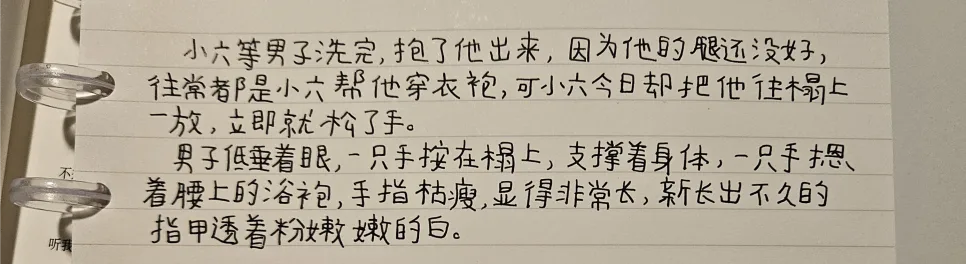 小六等男子洗完,抱了他出来,因为他的腿还没好,
往常都是小六帮他穿衣袍,可小六今日却把他往榻上
一放,立即就松了手。
男子低垂着眼,一只手按在榻上,支撑着身体,一只手摁
着腰上的浴袍,手指枯瘦,显得非常长,新长出不久的
指甲透着粉嫩嫩的白。
不
听我